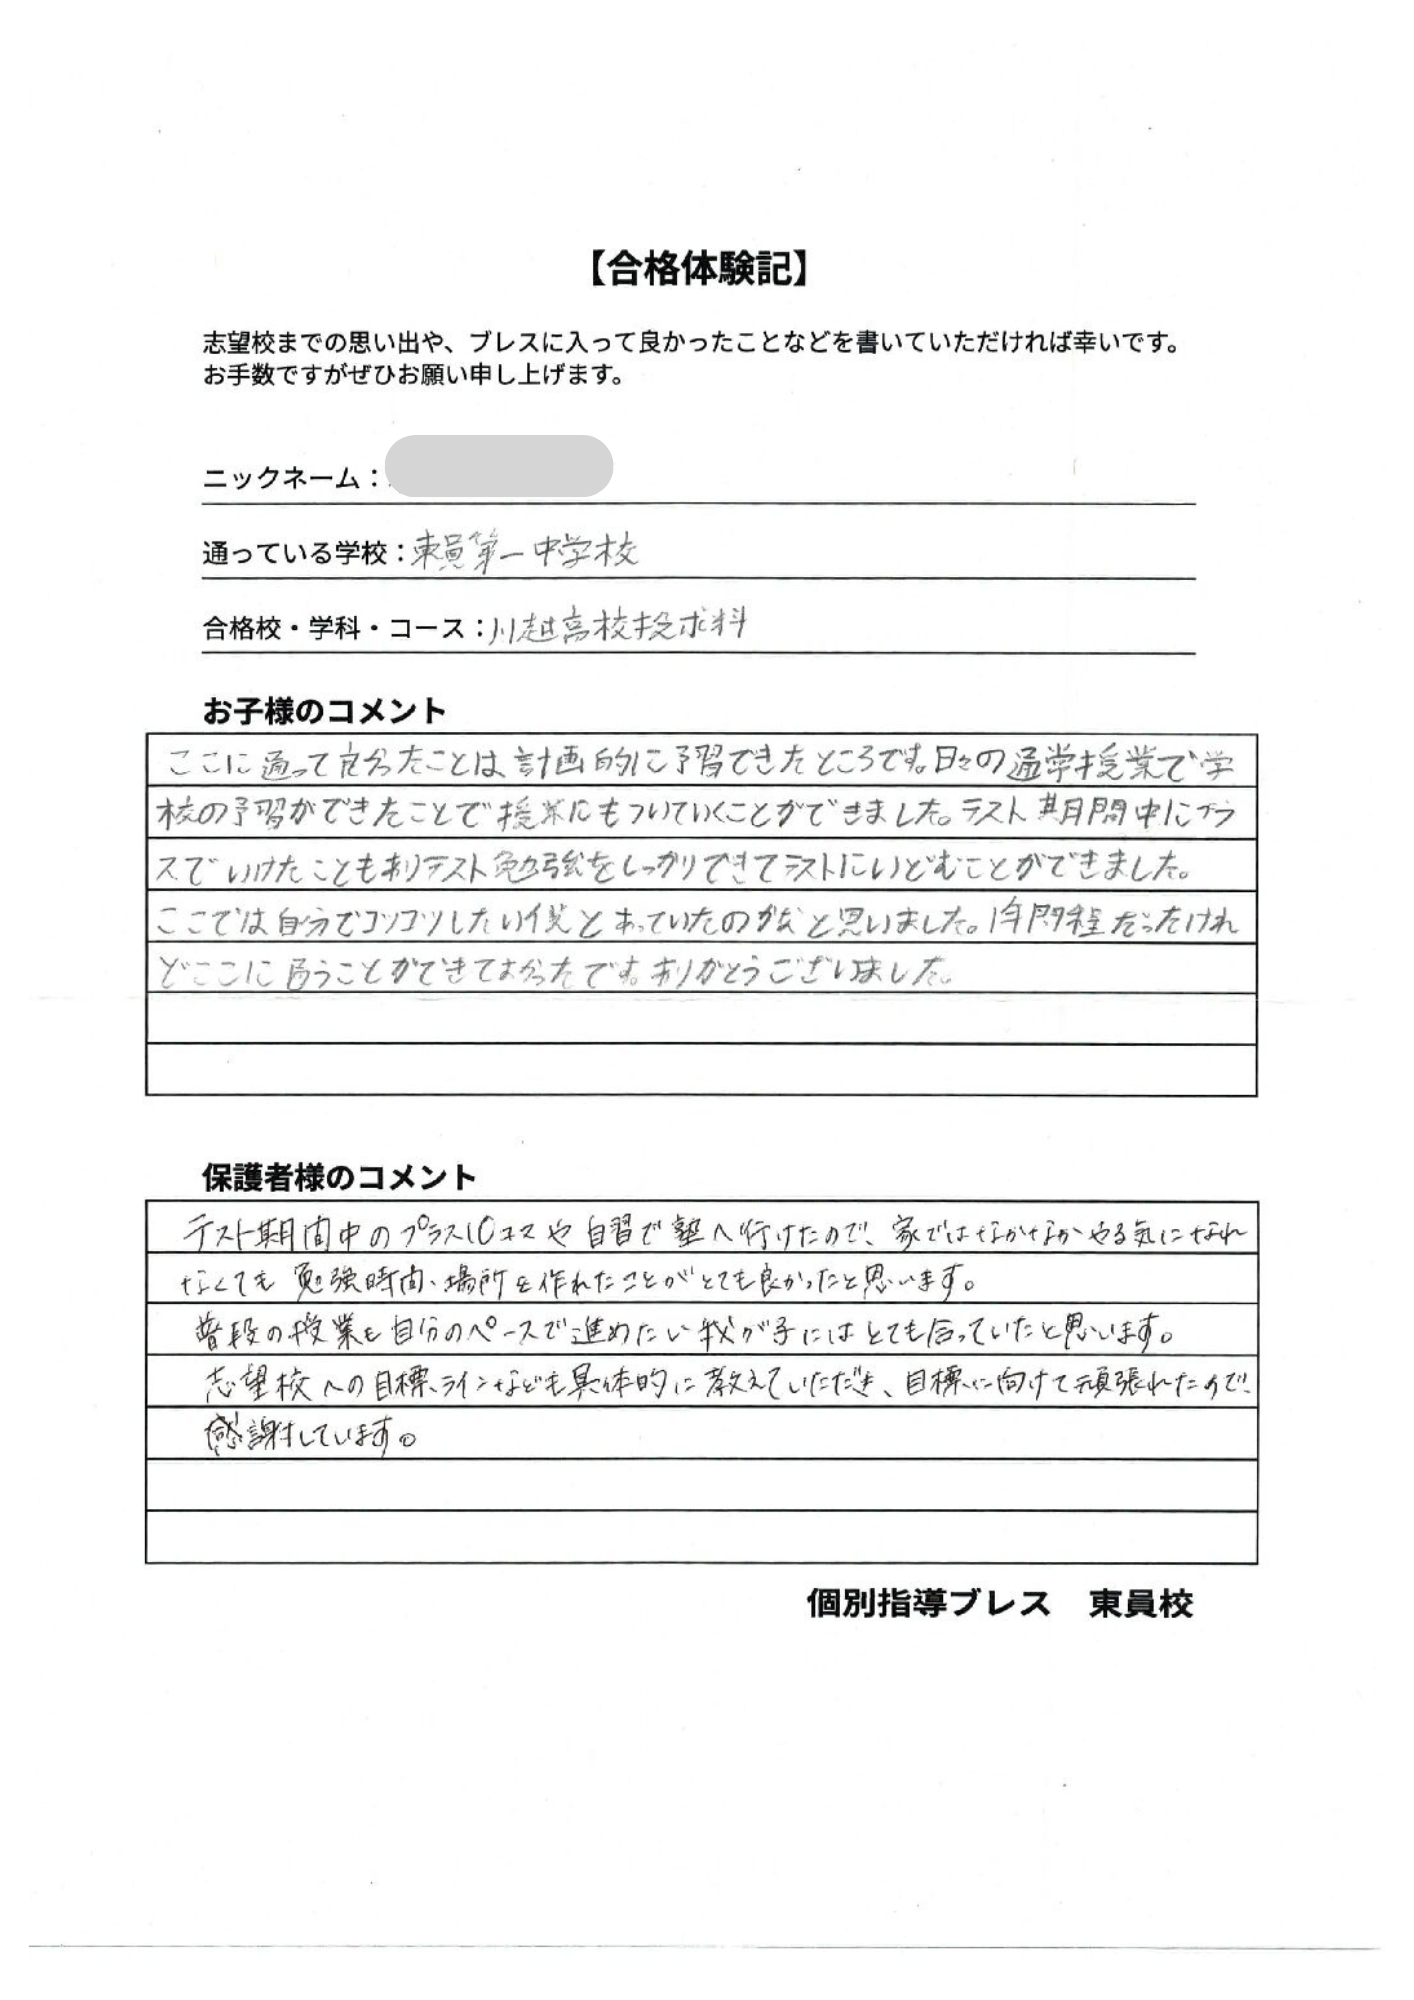 【合格体験記】
志望校までの思い出や、ブレスに入って良かったことなどを書いていただければ幸いです。
お手数ですがぜひお願い申し上げます。
ニックネーム：
通っている学校：東員第一中学校
合格校・学科・コース：川越高校探求科
お子様のコメント
ここに通って良かったことは、計画的に予習できたところです。日々の通常授業で学
校の予習ができたことで授業にもついていくことができました。テスト期間中にプラ
スでいけたこともありテスト勉強をしっかりできてテストにいどむことができました。
ここでは自分でコツコツしたい僕とあっていたのかなと思いました。1年間程だったけれ
どここに通うことができてよかったです。ありがとうございました。
保護者様のコメント
テスト期間中のプラス10コマや自習で塾へ行けたので、家ではなかなかやる気になれ
なくても勉強時間、場所を作れたことがとても良かったと思います。
普段の授業も自分のペースで進めたい我が子にはとても合っていたと思います。
志望校への目標ラインなども具体的に教えていただき、目標に向けて頑張れたので、
感謝しています。
個別指導ブレス 東員校